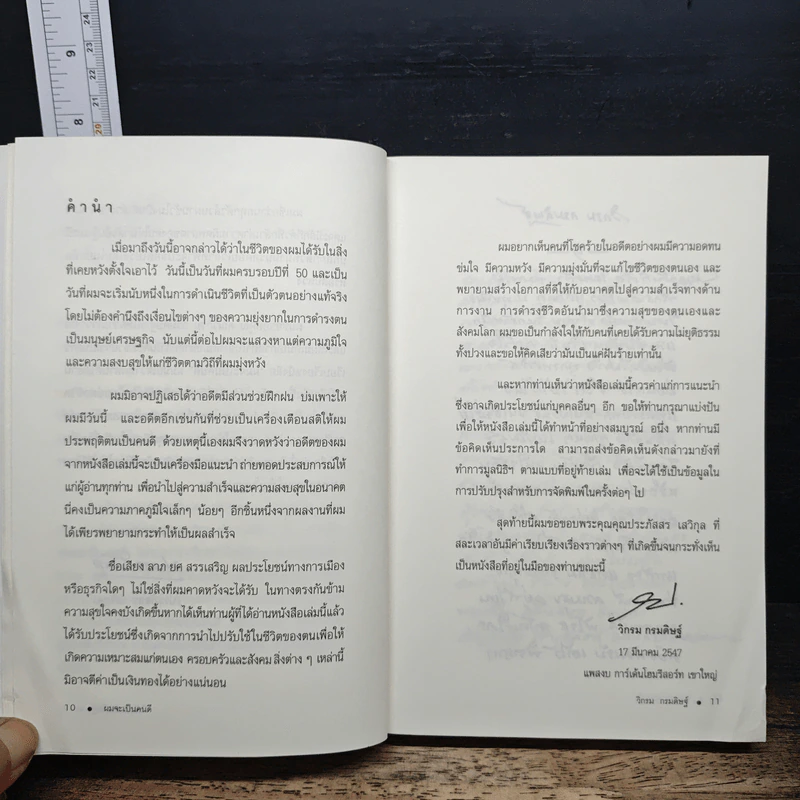 9
8
24
23
22
21
20
คำนำ
เมื่อมาถึงวันนี้อาจกล่าวได้ว่าในชีวิตของผมได้รับในสิ่ง
ที่เคยหวังตั้งใจเอาไว้ วันนี้เป็นวันที่ผมครบรอบปีที่ 50 และเป็น
วันที่ผมจะเริ่มนับหนึ่งในการดำเนินชีวิตที่เป็นตัวตนอย่างแท้จริง
โดยไม่ต้องคำนึงถึงเงื่อนไขต่างๆ ของความยุ่งยากในการดำรงตน
เป็นมนุษย์เศรษฐกิจ นับแต่นี้ต่อไปผมจะแสวงหาแต่ความภูมิใจ
และความสงบสุขให้แก่ชีวิตตามวิถีที่ผมมุ่งหวัง
ผมมิอาจปฏิเสธได้ว่าอดีตมีส่วนช่วยฝึกฝน บ่มเพาะให้
ผมมีวันนี้ และอดีตอีกเช่นกันที่ช่วยเป็นเครื่องเตือนสติให้ผม
ประพฤติตนเป็นคนดี ด้วยเหตุนี้เองผมจึงวาดหวังว่าอดีตของผม
จากหนังสือเล่มนี้จะเป็นเครื่องมือแนะนำ ถ่ายทอดประสบการณ์ให้
แก่ผู้อ่านทุกท่าน เพื่อนำไปสู่ความสำเร็จและความสงบสุขในอนาคต
นี่คงเป็นความภาคภูมิใจเล็กๆ น้อยๆ อีกชิ้นหนึ่งจากผลงานที่ผม
ได้เพียรพยายามกระทำให้เป็นผลสำเร็จ
ชื่อเสียง ลาภ ยศ สรรเสริญ ผลประโยชน์ทางการเมือง
หรือธุรกิจใดๆ ไม่ใช่สิ่งที่ผมคาดหวังจะได้รับ ในทางตรงกันข้าม
ความสุขใจคงบังเกิดขึ้นหากได้เห็นท่านผู้ที่ได้อ่านหนังสือเล่มนี้แล้ว
ได้รับประโยชน์ซึ่งเกิดจากการนำไปปรับใช้ในชีวิตของตนเพื่อให้
เกิดความเหมาะสมแก่ตนเอง ครอบครัวและสังคม สิ่งต่าง ๆ เหล่านี้
มิอาจตีค่าเป็นเงินทองได้อย่างแน่นอน
10 ● ผมจะเป็นคนดี
ผมอยากเห็นคนที่โชคร้ายในอดีตอย่างผมมีความอดทน
ข่มใจ มีความหวัง มีความมุ่งมั่นที่จะแก้ไขชีวิตของตนเอง และ
พยายามสร้างโอกาสที่ดีให้กับอนาคตไปสู่ความสำเร็จทางด้าน
การงาน การดำรงชีวิตอันนำมาซึ่งความสุขของตนเองและ
สังคมโลก ผมขอเป็นกำลังใจให้กับคนที่เคยได้รับความไม่ยุติธรรม
ทั้งปวงและขอให้คิดเสียว่ามันเป็นแค่ฝันร้ายเท่านั้น
และหากท่านเห็นว่าหนังสือเล่มนี้ควรค่าแก่การแนะนำ
ซึ่งอาจเกิดประโยชน์แก่บุคคลอื่นๆ อีก ขอให้ท่านกรุณาแบ่งปัน
เพื่อให้หนังสือเล่มนี้ได้ทำหน้าที่อย่างสมบูรณ์ อนึ่ง หากท่านมี
ข้อคิดเห็นประการใด สามารถส่งข้อคิดเห็นดังกล่าวมายังที่
ทำการมูลนิธิฯ ตามแบบที่อยู่ท้ายเล่ม เพื่อจะได้ใช้เป็นข้อมูลใน
การปรับปรุงสำหรับการจัดพิมพ์ในครั้งต่อๆ ไป
สุดท้ายนี้ผมขอขอบพระคุณคุณประภัสสร เสวิกุล ที่
สละเวลาอันมีค่าเรียบเรียงเรื่องราวต่างๆ ที่เกิดขึ้นจนกระทั่งเห็น
เป็นหนังสือที่อยู่ในมือของท่านขณะนี้
วิกรม กรมดิษฐ์
17 มีนาคม 2547
แพสงบ การ์เด้นโฮมรีสอร์ท เขาใหญ่
วิกรม กรมดิษฐ์ ● 11